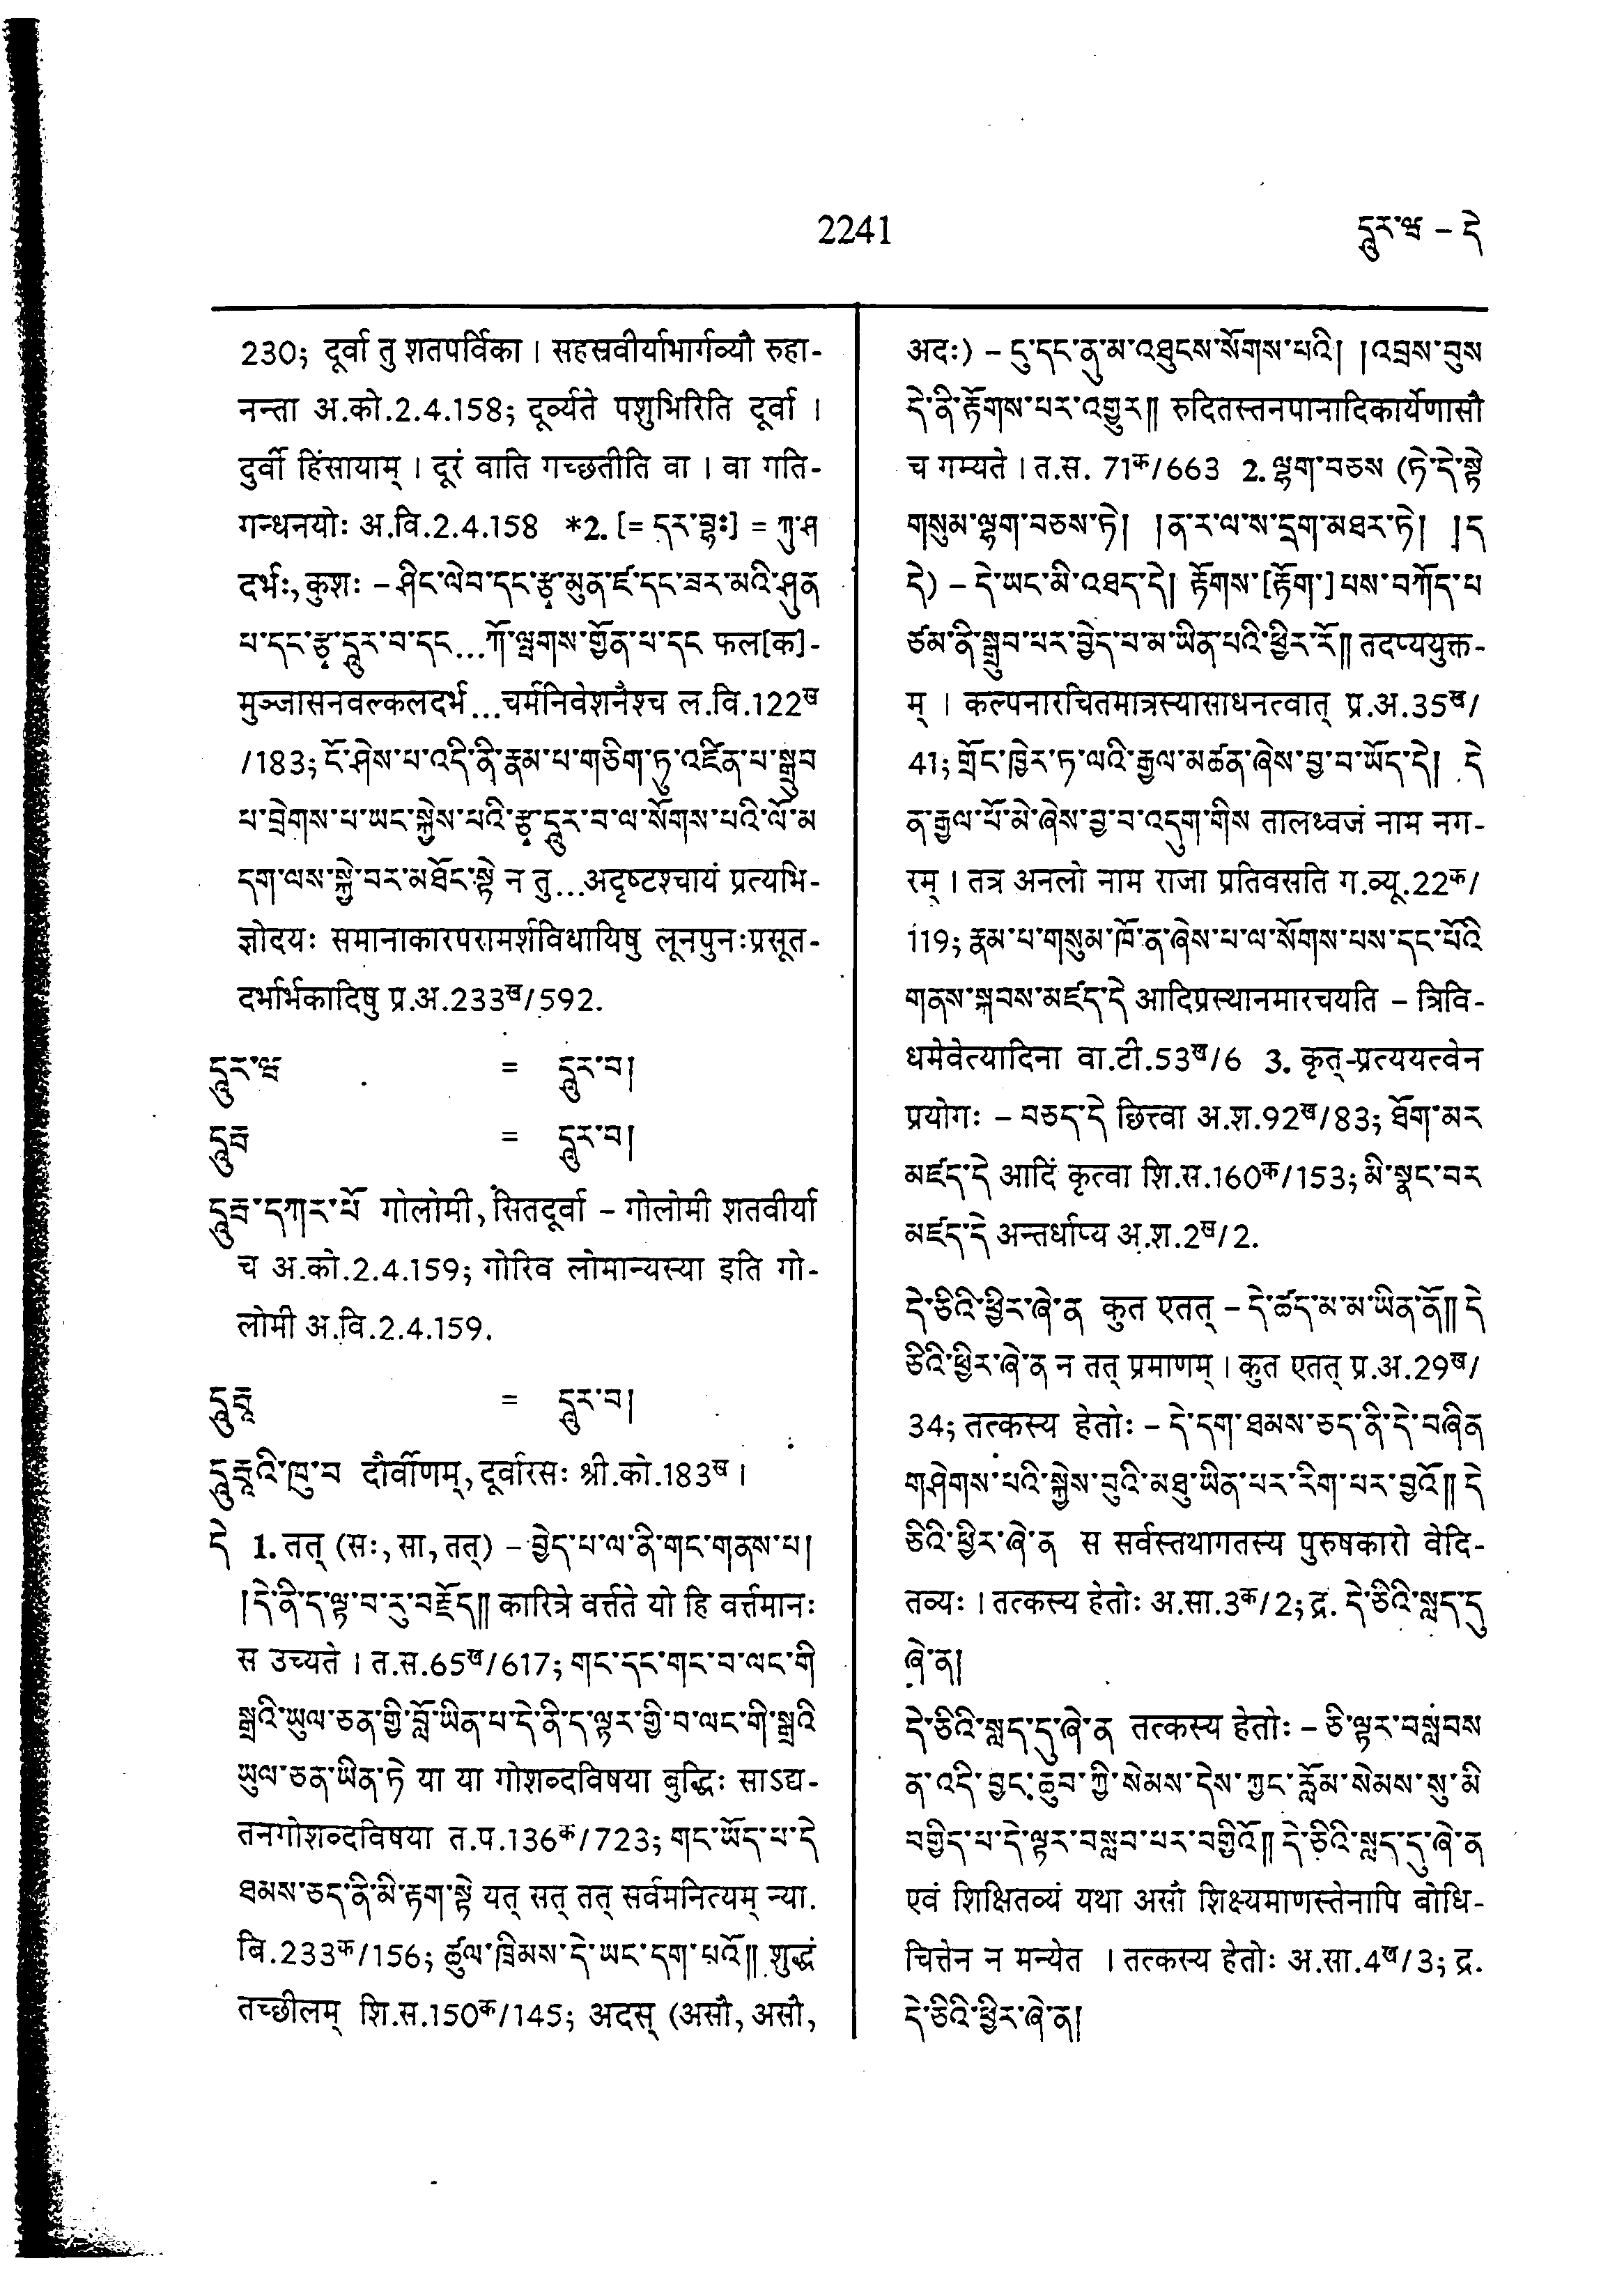 2241
དཱུར་ཝ – དེ
230; दूर्वा तु शतपर्विका । सहस्रवीर्याभार्गव्यौ रुहा-
नन्ता अ.को.2.4.158; दूर्व्यते पशुभिरिति दूर्वा ।
दुर्वी हिंसायाम् । दूरं वाति गच्छतीति वा । वा गति-
गन्धनयोः अ.वि.2.4.158 *2. [= དར་བྷཿ] = ཀུ་ཤ
दर्भः, कुशः – ཤིང་ལེབ་དང་རྩྭ་མུན་ཛ་དང་ཟར་མའི་ཤུན
པ་དང་རྩྭ་དཱུར་བ་དང...ཀོ་ལྤགས་གྱོན་པ་དང फल[क]-
मुञ्जासनवल्कलदर्भ...चर्मनिवेशनैश्च ल.वि.122ख
/183; ངོ་ཤེས་པ་འདི་ནི་རྣམ་པ་གཅིག་ཏུ་འཛིན་པ་སྒྲུབ
པ་བྲེགས་པ་ཡང་སྐྱེས་པའི་རྩྭ་དཱུར་བ་ལ་སོགས་པའི་ལོ་མ
དག་ལས་སྐྱེ་བར་མཐོང་སྟེ न तु...अदृष्टश्चायं प्रत्यभि-
ज्ञोदयः समानाकारपरामर्शविधायिषु लूनपुनःप्रसूत-
दर्भार्भकादिषु प्र.अ.233ख/592.
དཱུར་ཝ = དཱུར་བ།
དཱུརྦ = དཱུར་བ།
དཱུརྦ་དཀར་པོ गोलोमी, सितदूर्वा – गोलोमी शतवीर्या
च अ.को.2.4.159; गोरिव लोमान्यस्या इति गो-
लोमी अ.वि.2.4.159.
དཱུརྦཱ = དཱུར་བ།
དཱུརྦཱའི་ཁུ་བ दौर्वीणम्, दूर्वारसः श्री.को.183ख ।
དེ 1. तत् (सः, सा, तत्) – བྱེད་པ་ལ་ནི་གང་གནས་པ།
།དེ་ནི་ད་ལྟ་བ་རུ་བརྗོད།། कारित्रे वर्त्तते यो हि वर्त्तमानः
स उच्यते । त.स.65ख/617; གང་དང་གང་བ་ལང་གི
སྒྲའི་ཡུལ་ཅན་གྱི་བློ་ཡིན་པ་དེ་ནི་ད་ལྟར་གྱི་བ་ལང་གི་སྒྲའི
ཡུལ་ཅན་ཡིན་ཏེ या या गोशब्दविषया बुद्धिः साऽद्य-
तनगोशब्दविषया त.प.136क/723; གང་ཡོད་པ་དེ
ཐམས་ཅད་ནི་མི་རྟག་སྟེ यत् सत् तत् सर्वमनित्यम् न्या.
बि.233क/156; ཚུལ་ཁྲིམས་དེ་ཡང་དག་པའོ།། शुद्धं
तच्छीलम् शि.स.150क/145; अदस् (असौ, असौ,
अदः) – དུ་དང་ནུ་མ་འཐུངས་སོགས་པའི། །འབྲས་བུས
དེ་ནི་རྟོགས་པར་འགྱུར།། रुदितस्तनपानादिकार्येणासौ
च गम्यते । त.स. 71क/663 2. ལྷག་བཅས (ཏེ་དེ་སྟེ
གསུམ་ལྷག་བཅས་ཏེ། །ན་ར་ལ་ས་དྲག་མཐར་ཏེ། །ད
དེ) – དེ་ཡང་མི་འཐད་དེ། རྟོགས་[རྟོག་]པས་བཀོད་པ
ཙམ་ནི་སྒྲུབ་པར་བྱེད་པ་མ་ཡིན་པའི་ཕྱིར་རོ།། तदप्ययुक्त-
म् । कल्पनारचितमात्रस्यासाधनत्वात् प्र.अ.35ख/
41; གྲོང་ཁྱེར་ཏ་ལའི་རྒྱལ་མཚན་ཞེས་བྱ་བ་ཡོད་དེ། དེ
ན་རྒྱལ་པོ་མེ་ཞེས་བྱ་བ་འདུག་གིས तालध्वजं नाम नग-
रम् । तत्र अनलो नाम राजा प्रतिवसति ग.व्यू.22क/
119; རྣམ་པ་གསུམ་ཁོ་ན་ཞེས་པ་ལ་སོགས་པས་དང་པོའི
གནས་སྐབས་མཛད་དེ आदिप्रस्थानमारचयति – त्रिवि-
धमेवेत्यादिना वा.टी.53ख/6 3. कृत्-प्रत्ययत्वेन
प्रयोगः – བཅད་དེ छित्त्वा अ.श.92ख/83; ཐོག་མར
མཛད་དེ आदिं कृत्वा शि.स.160क/153; མི་སྣང་བར
མཛད་དེ अन्तर्धाप्य अ.श.2ख/2.
དེ་ཅིའི་ཕྱིར་ཞེ་ན कुत एतत् – དེ་ཚད་མ་མ་ཡིན་ནོ།། དེ
ཅིའི་ཕྱིར་ཞེ་ན न तत् प्रमाणम् । कुत एतत् प्र.अ.29ख/
34; तत्कस्य हेतोः – དེ་དག་ཐམས་ཅད་ནི་དེ་བཞིན
གཤེགས་པའི་སྐྱེས་བུའི་མཐུ་ཡིན་པར་རིག་པར་བྱའོ།། དེ
ཅིའི་ཕྱིར་ཞེ་ན स सर्वस्तथागतस्य पुरुषकारो वेदि-
तव्यः । तत्कस्य हेतोः अ.सा.3क/2; द्र. དེ་ཅིའི་སླད་དུ
ཞེ་ན།
དེ་ཅིའི་སླད་དུ་ཞེ་ན तत्कस्य हेतोः – ཅི་ལྟར་བསླབས
ན་འདི་བྱང་ཆུབ་ཀྱི་སེམས་དེས་ཀྱང་རློམ་སེམས་སུ་མི
བགྱིད་པ་དེ་ལྟར་བསླབ་པར་བགྱིའོ།། དེ་ཅིའི་སླད་དུ་ཞེ་ན
एवं शिक्षितव्यं यथा असौ शिक्ष्यमाणस्तेनापि बोधि-
चित्तेन न मन्येत । तत्कस्य हेतोः अ.सा.4ख/3; द्र.
དེ་ཅིའི་ཕྱིར་ཞེ་ན།